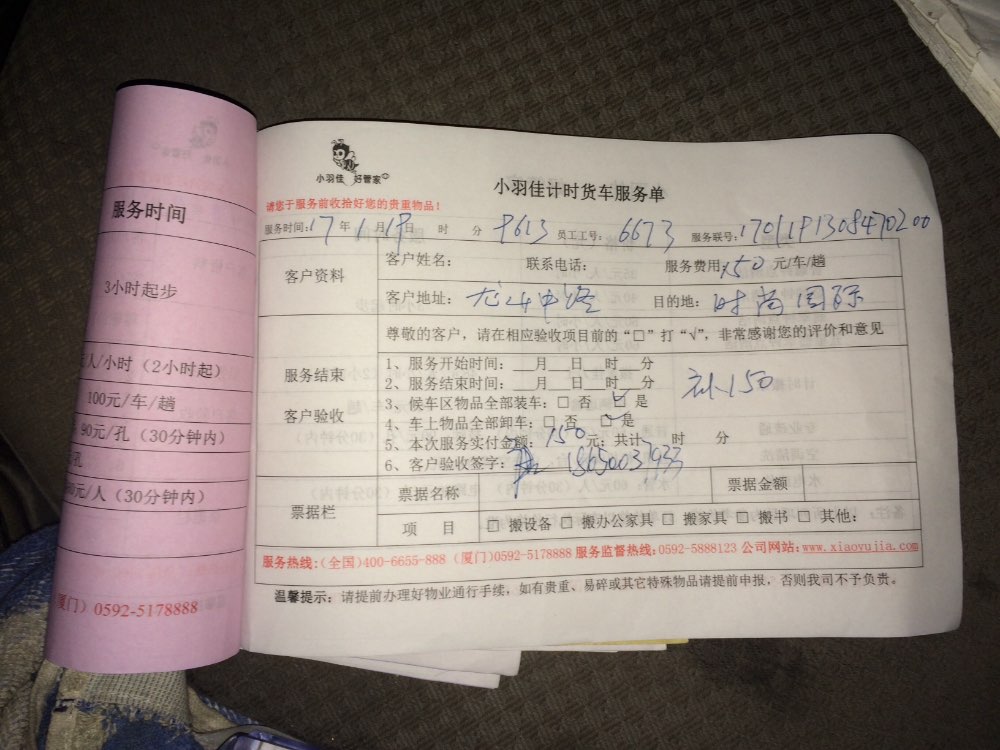 服务时间
3小时起步
人/小时（2小时起）
100元/车/趟
90元/孔（30分钟内）
孔
元/人（30分钟内）
厦门）0592-5178888
小羽佳 好管家
小羽佳计时货车服务单
请您于服务前收拾好您的贵重物品！
服务时间：17年1月19日 时 分 9613 员工工号：6673 服务联号：1701191308470200
客户资料
客户姓名： 联系电话： 服务费用：150元/车/趟
客户地址：龙山中路 目的地：时尚国际
尊敬的客户，请在相应验收项目前的“□”打“√”，非常感谢您的评价和意见
服务结束
客户验收
1、服务开始时间：__月__日__时__分
2、服务结束时间：__月__日__时__分
3、候车区物品全部装车：□ 否 ☑ 是
4、车上物品全部卸车：□ 否 ☑ 是
5、本次服务实付金额：150元；共计 时 分
150
6、客户验收签字：
票据栏
票据名称
票据金额
项 目
□ 搬设备 □ 搬办公家具 □ 搬家具 □ 搬书 □ 其他：
服务热线:(全国)400-6655-888 (厦门)0592-5178888 服务监督热线:0592-5888123 公司网站:www.xiaoyujia.com
温馨提示：请提前办理好物业通行手续，如有贵重、易碎或其它特殊物品请提前申报，否则我司不予负责。